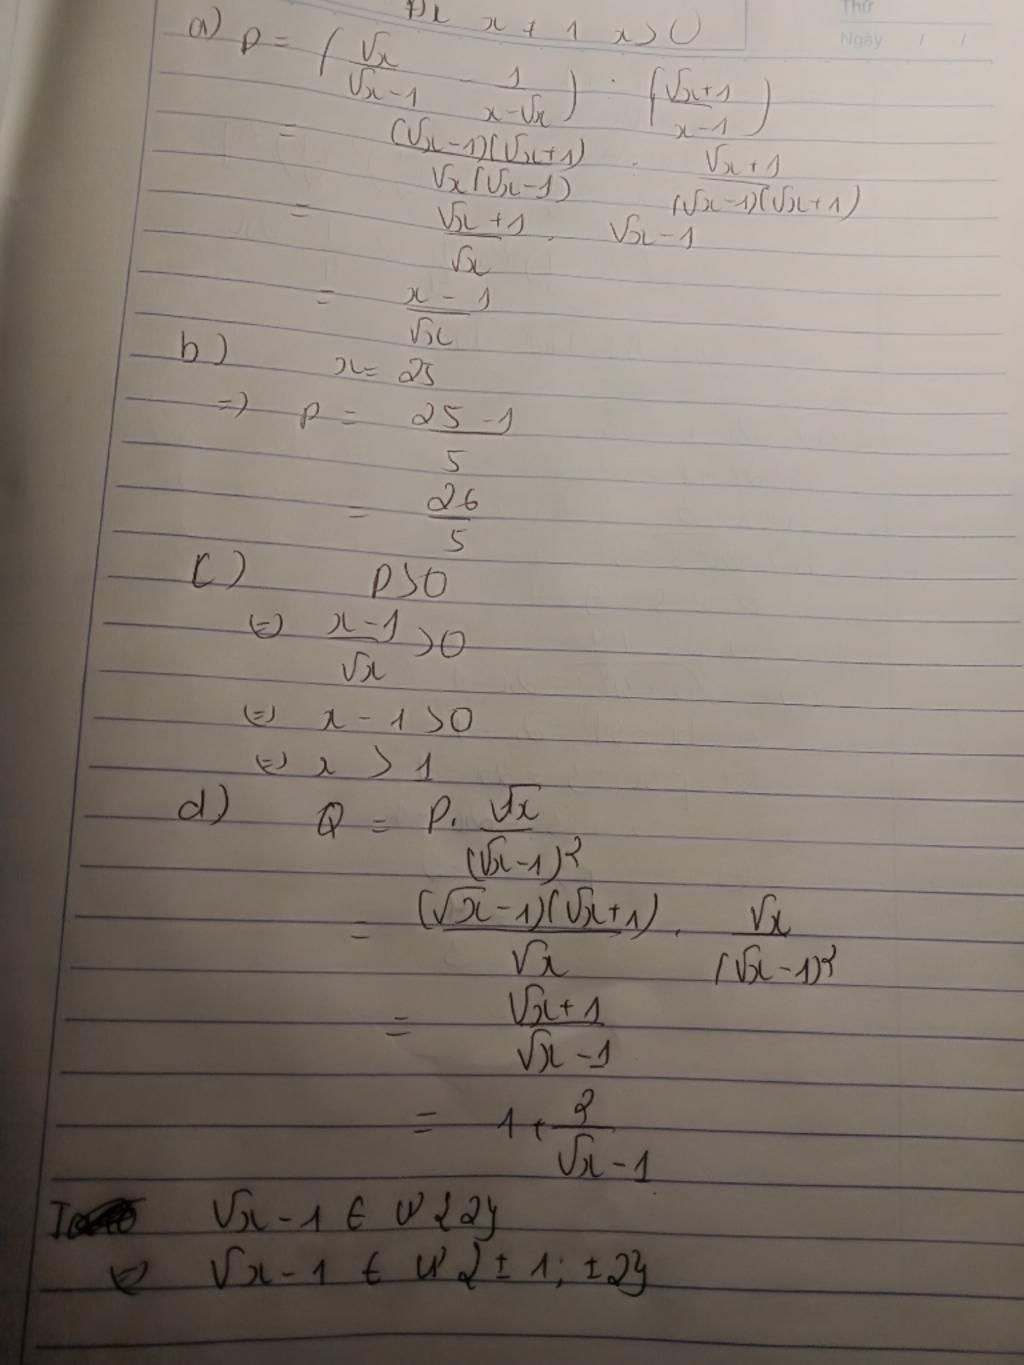 Đk x ≠ 1 x > 0
Thứ
Ngày / /
a) P = (√x/(√x-1) - 1/(x-√x)) : ((√x+1)/(x-1))
= (√x-1)(√x+1)/(√x(√x-1)) : (√x+1)/((√x-1)(√x+1))
= (√x+1)/√x . √x-1
= (x-1)/√x
b) x = 25
=> P = (25-1)/5
= 26/5
c) P>0
⇔ (x-1)/√x >0
⇔ x-1>0
⇔ x > 1
d) Q = P. √x/(√x-1)²
= (√x-1)(√x+1)/√x . √x/(√x-1)²
= (√x+1)/(√x-1)
= 1 + 2/(√x-1)
√x-1 ∈ Ư{2}
⇔ √x-1 ∈ Ư{±1; ±2}